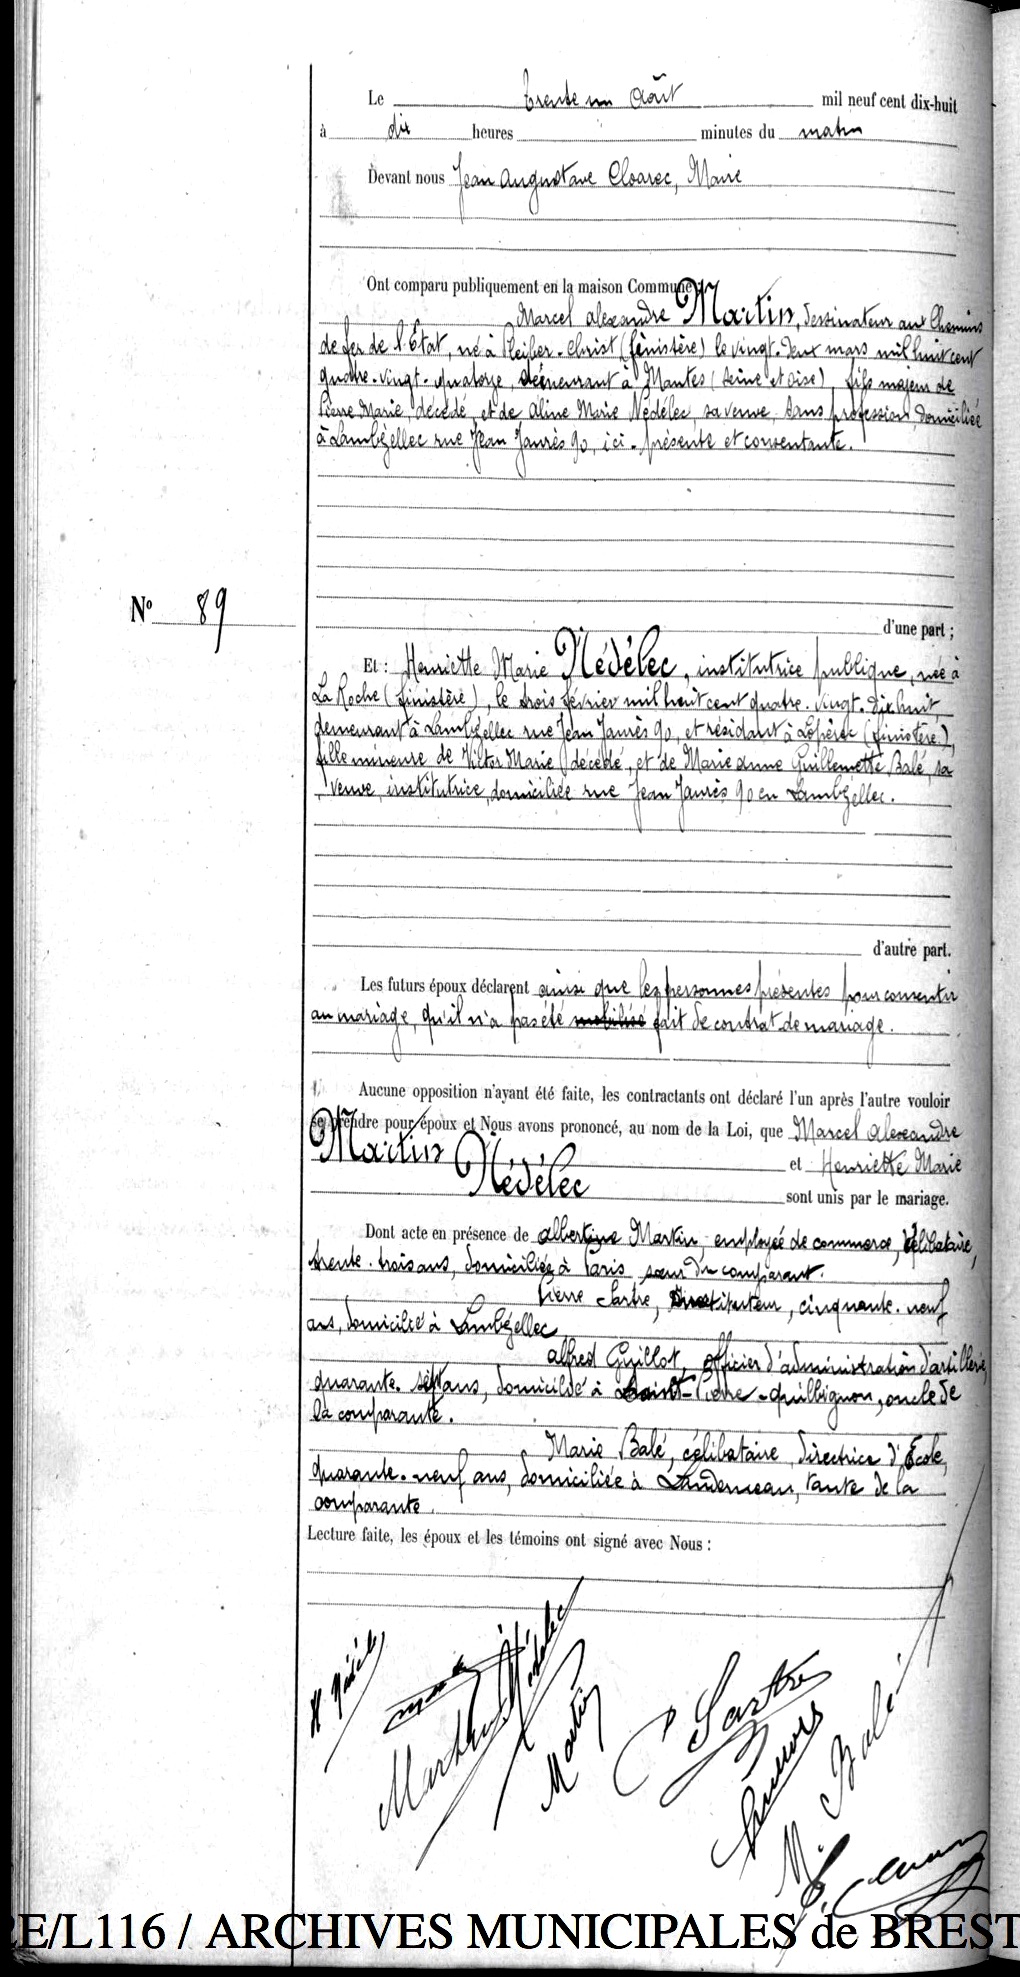 Le trente un août mil neuf cent dix-huit
à dix heures minutes du matin
Devant nous Jean Augustave Cloarec, Maire
Ont comparu publiquement en la maison Commune
Marcel Alexandre Martin, dessinateur aux Chemins
de fer de l'État, né à Pleiber-Christ (Finistère) le vingt-deux mars mil huit cent
quatre-vingt-quatorze, demeurant à Mantes (Seine et Oise), fils majeur de
Pierre Marie, décédé, et de Aline Marie Nédélec, sa veuve, sans profession, domiciliée
à Lambézellec rue Jean Jaurès 90, ici-présente et consentante.
N° 89
d'une part ;
Et : Henriette Marie Nédélec, institutrice publique, née à
La Roche (Finistère), le trois février mil huit cent quatre-vingt-dix huit,
demeurant à Lambézellec rue Jean Jaurès 90, et résidant à Lopérec (Finistère),
fille mineure de Victor Marie, décédé, et de Marie Anne Guillemette Balé, sa
veuve, institutrice, domiciliée rue Jean Jaurès 90 en Lambézellec.
d'autre part.
Les futurs époux déclarent ainsi que les personnes présentes pour consentir
au mariage, qu'il n'a pas été mobilisé fait de contrat de mariage.
Aucune opposition n'ayant été faite, les contractants ont déclaré l'un après l'autre vouloir
se prendre pour époux et Nous avons prononcé, au nom de la Loi, que Marcel Alexandre
Martin et Henriette Marie
Nédélec sont unis par le mariage.
Dont acte en présence de Albertine Martin, employée de commerce, célibataire,
trente-trois ans, domiciliée à Paris, sœur du comparant.
Pierre Sartre, Instituteur, cinquante-neuf
ans, domicilié à Lambézellec
Alfred Guillot, officier d'administration d'artillerie,
quarante-sept ans, domicilié à Saint-Pierre-Quilbignon, oncle de
la comparante.
Marie Balé, célibataire, directrice d'École,
quarante-neuf ans, domiciliée à Landerneau, tante de la
comparante.
Lecture faite, les époux et les témoins ont signé avec Nous :
H Nédélec
Martin Nédélec
Martin
P Sartre
M. Balé
RE/L116 / ARCHIVES MUNICIPALES de BREST